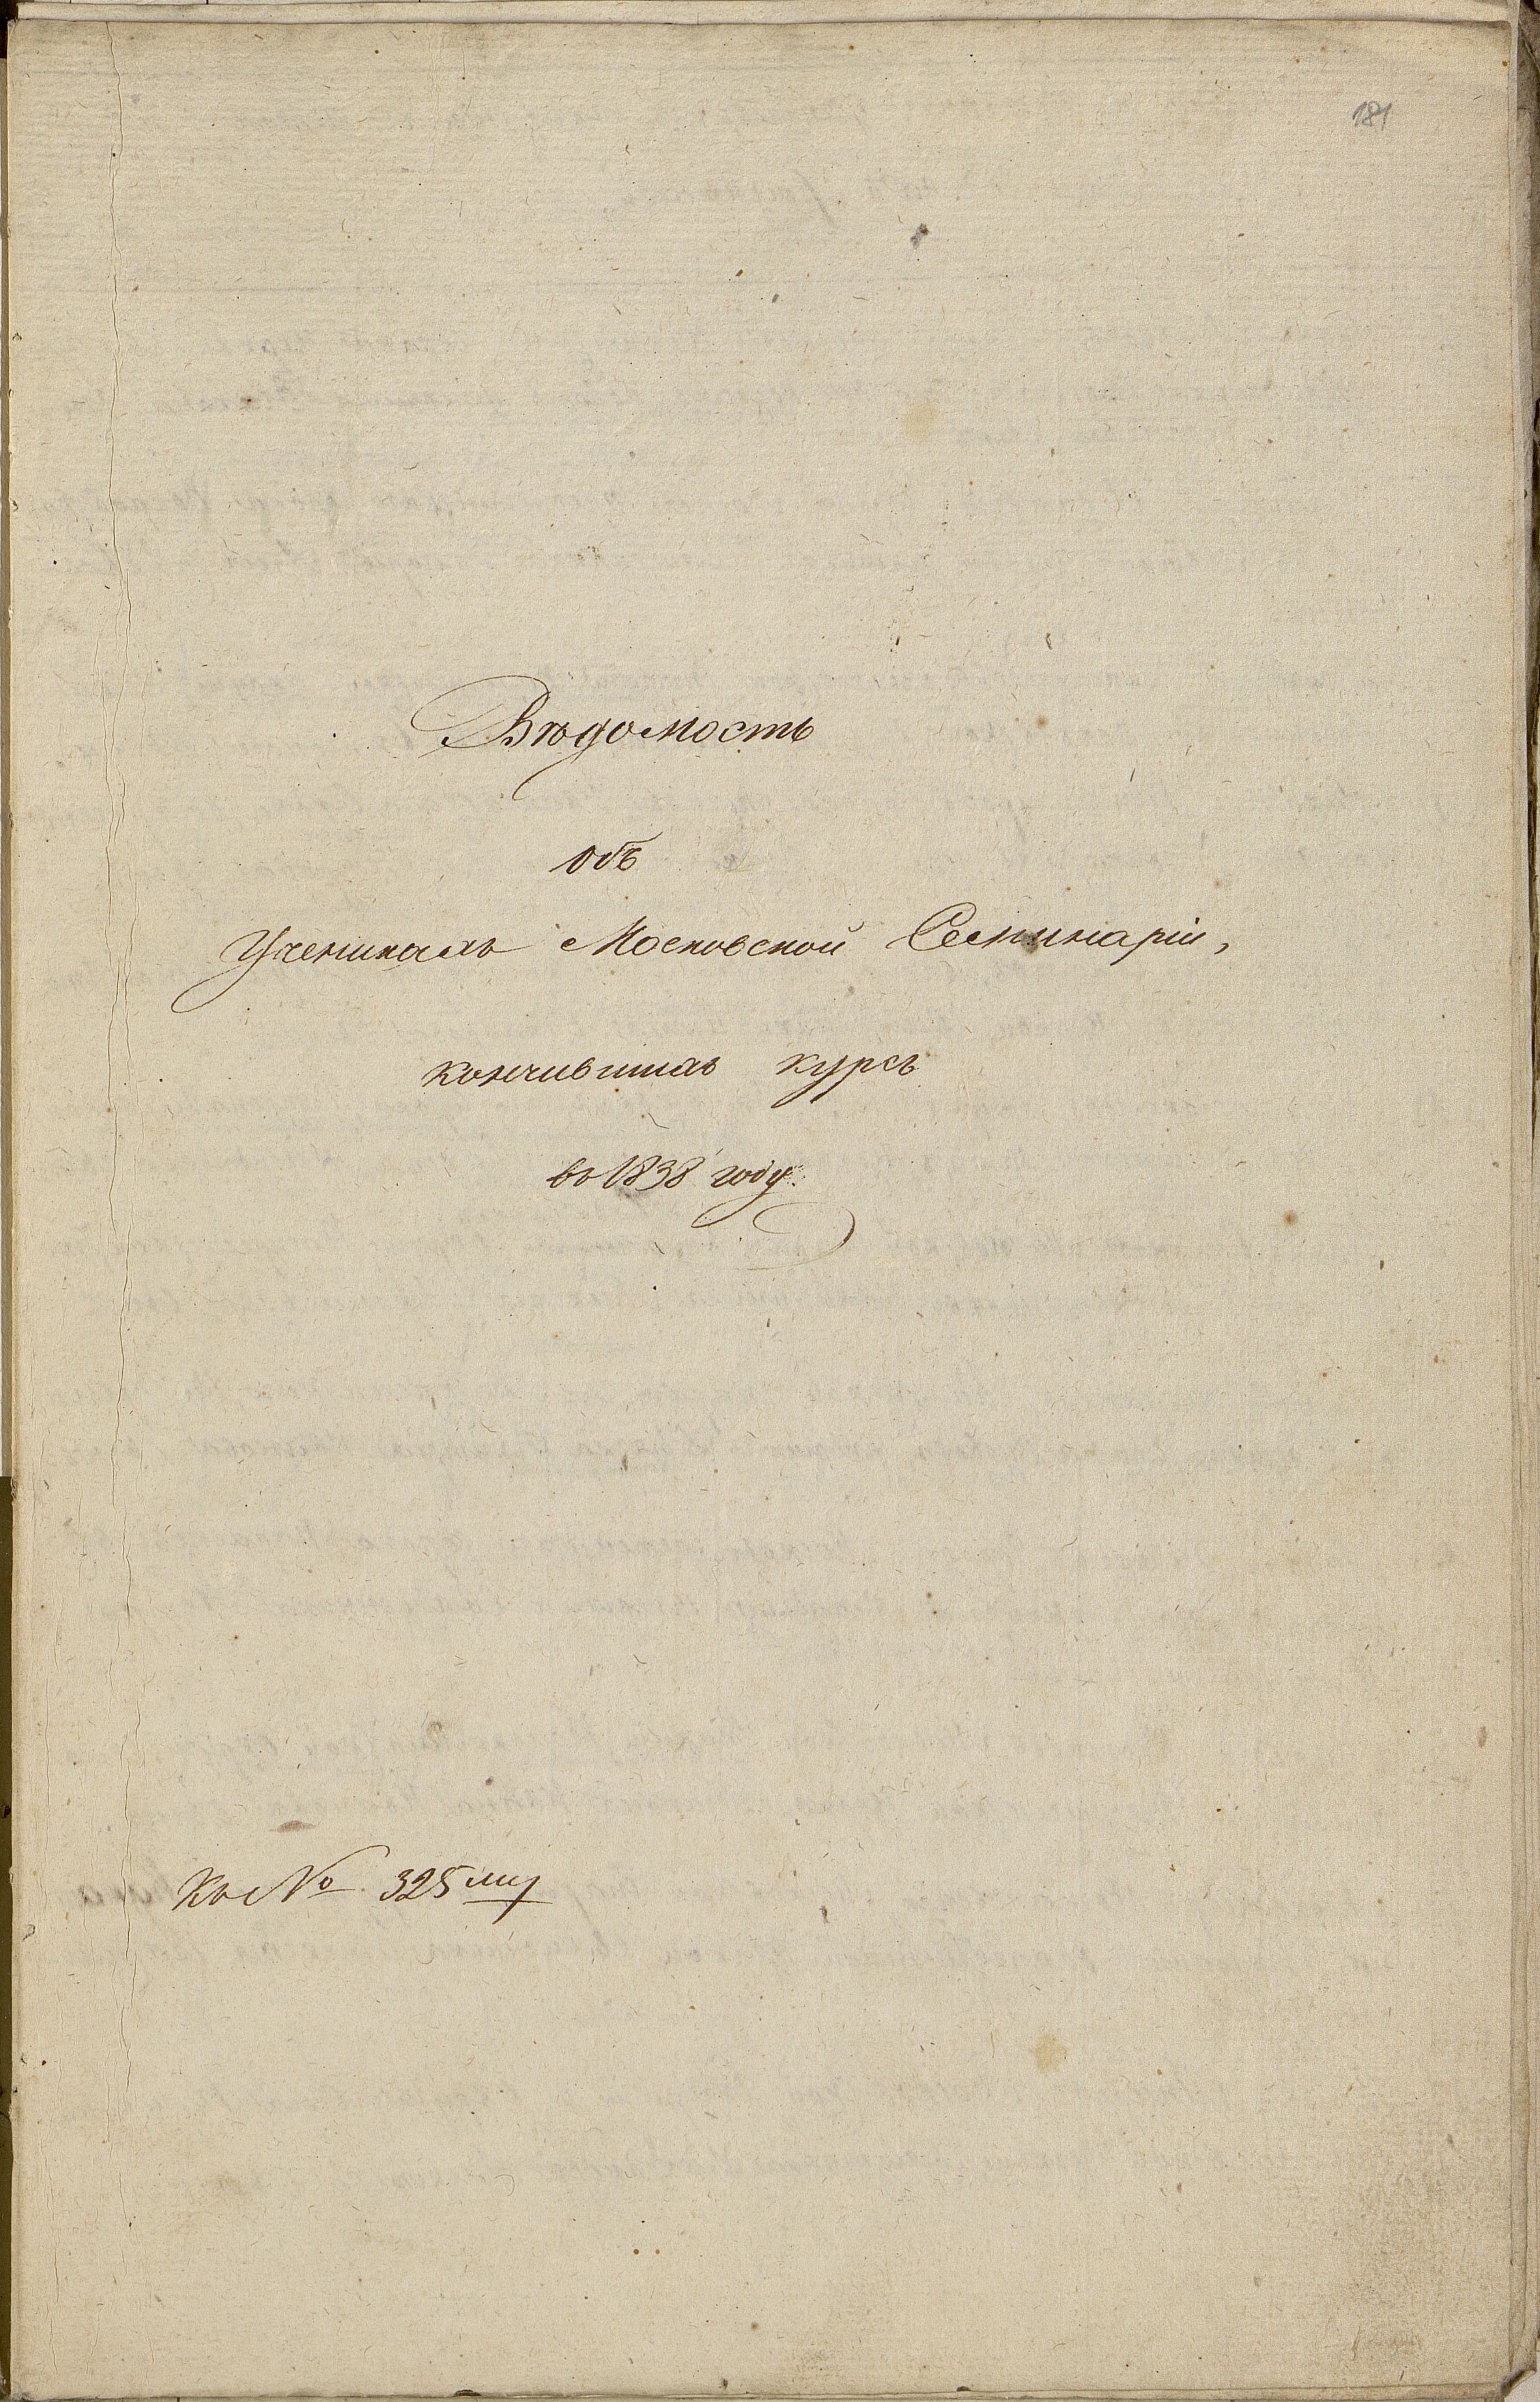 181
Вѣдомость
объ
Ученикахъ Московской Семинаріи,
кончившихъ курсъ
въ 1838 году.
Къ № 325му